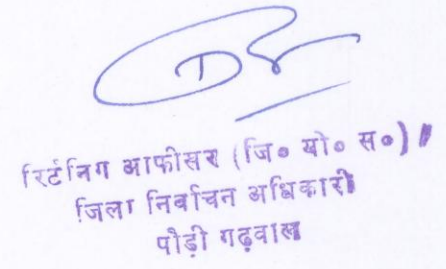 रिटर्निग आफीसर (जि० यो० स०)
जिला निर्वाचन अधिकारी
पौड़ी गढ़वाल